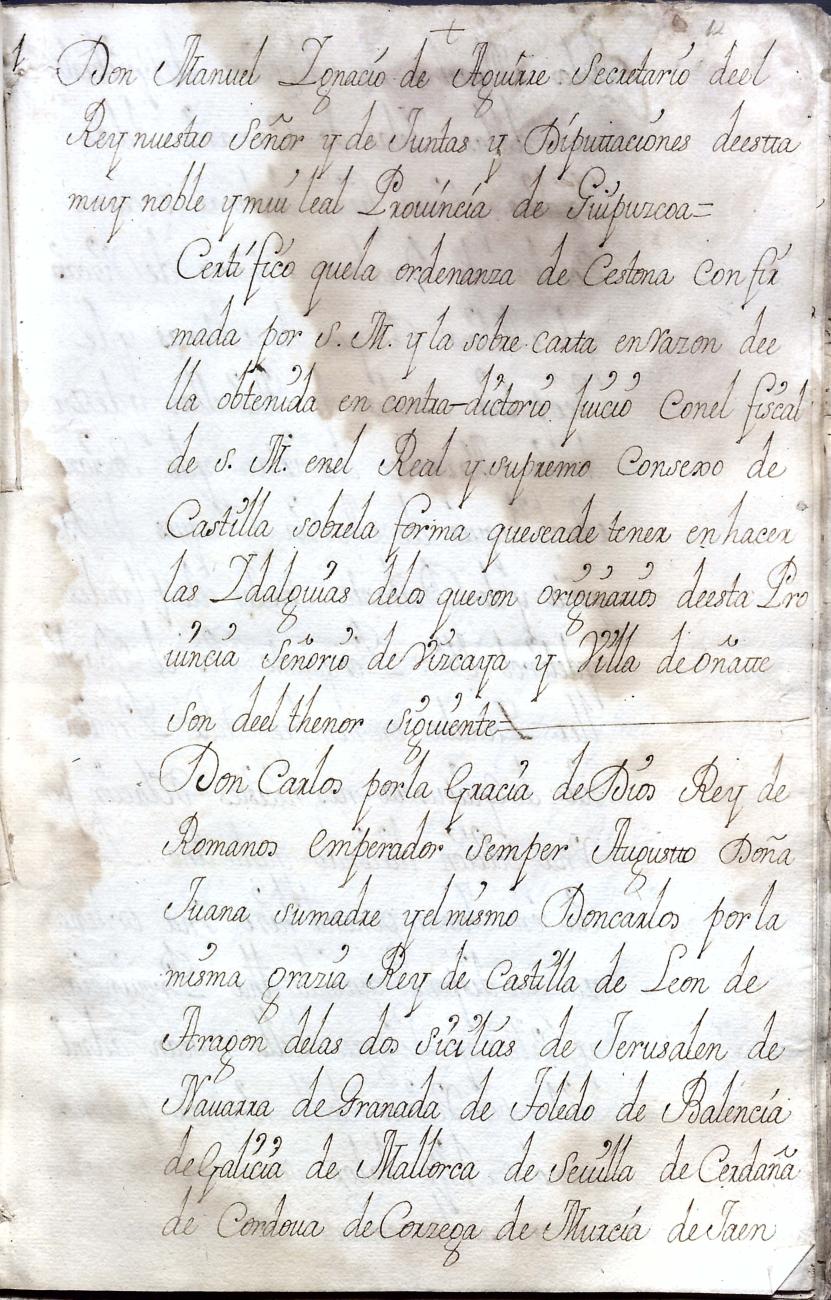 +
12
1 Don Manuel Ygnacio de Aguirre Secretario deel
Rey nuestro Señor y de Juntas y Diputtaciones deestta
muy noble y mui leal Prouincia de Guipuzcoa=
Certifico quela ordenanza de Cestona Confir
mada por S. M. y la sobre carta en Razon dee
lla obtenida en contra-dictorio Juicio Conel fiscal
de S. M. enel Real y supremo Consexo de
Castilla sobrela forma queseade tener en hacer
las Ydalguias delos queson originarios deesta Pro
uincia Señorio de Vizcaya y Villa de oñatte
son deel thenor siguiente=
Don Carlos porla Gracia de Dios Rey de
Romanos Emperador semper Augustto Doña
Juana sumadre yelmismo Doncarlos por la
misma grazia Rey de Castilla de Leon de
Aragon delas dos Sicilias de Jerusalen de
Nauarra de Granada de Toledo de Balencia
de Galicia de Mallorca de Seuilla de Cerdaña
de Cordoua de Corzega de Murcia de Jaen